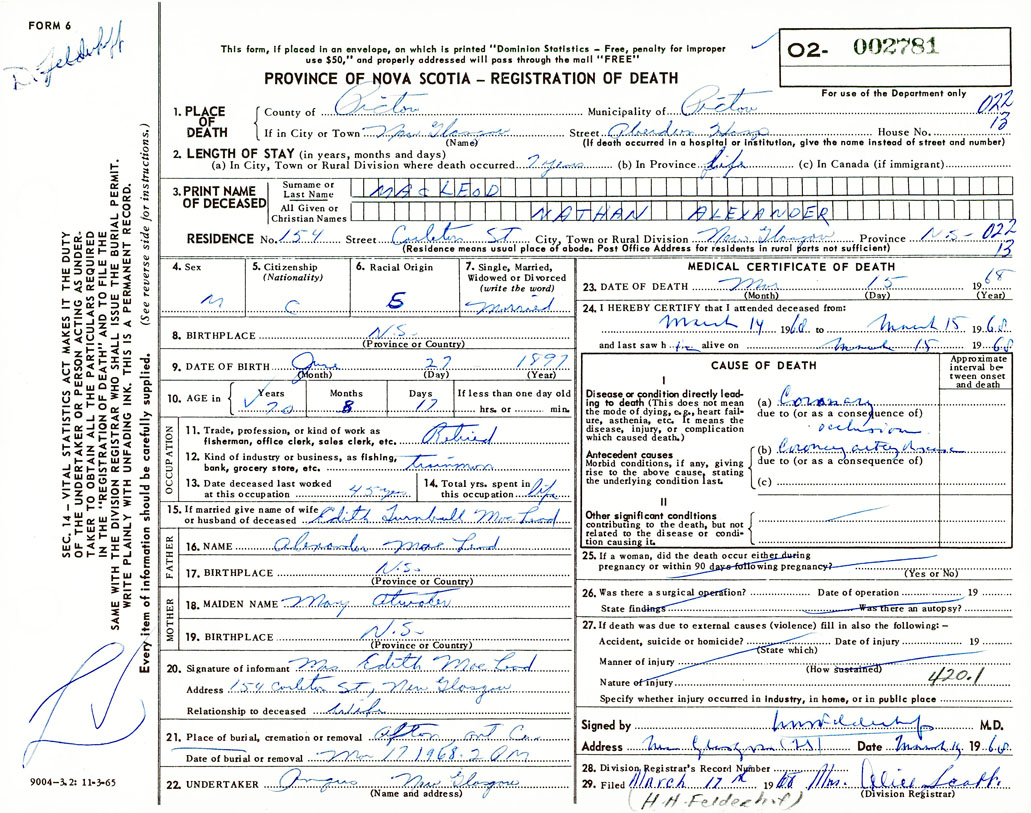 FORM 6
D. Felderhof
This form, if placed in an envelope, on which is printed "Dominion Statistics – Free, penalty for improper
use $50," and properly addressed will pass through the mail "FREE"
O2- 002781
PROVINCE OF NOVA SCOTIA – REGISTRATION OF DEATH
For use of the Department only
022
13
1. PLACE OF DEATH
County of Pictou Municipality of Pictou
If in City or Town New Glasgow Street Aberdeen Hosp House No.
(Name) (If death occurred in a hospital or institution, give the name instead of street and number)
2. LENGTH OF STAY (in years, months and days)
(a) In City, Town or Rural Division where death occurred 7 years (b) In Province life (c) In Canada (if immigrant)
3. PRINT NAME OF DECEASED
Surname or Last Name MACLEOD
All Given or Christian Names NATHAN ALEXANDER
RESIDENCE No. 154 Street Carleton St City, Town or Rural Division New Glasgow Province N.S- 022
(Residence means usual place of abode. Post Office Address for residents in rural parts not sufficient) 13
4. Sex
M
5. Citizenship
(Nationality)
C
6. Racial Origin
5
7. Single, Married,
Widowed or Divorced
(write the word)
Married
8. BIRTHPLACE N.S-
(Province or Country)
9. DATE OF BIRTH June 27 1897
(Month) (Day) (Year)
10. AGE in Years Months Days If less than one day old
70 8 17 hrs. or min.
OCCUPATION
11. Trade, profession, or kind of work as
fisherman, office clerk, sales clerk, etc. Retired
12. Kind of industry or business, as fishing,
bank, grocery store, etc. trainman
13. Date deceased last worked
at this occupation 45 yrs
14. Total yrs. spent in
this occupation life
15. If married give name of wife
or husband of deceased Edith Turnbull MacLeod
FATHER
16. NAME Alexander MacLeod
17. BIRTHPLACE N.S-
(Province or Country)
MOTHER
18. MAIDEN NAME Mary Atwater
19. BIRTHPLACE N.S-
(Province or Country)
20. Signature of informant Mrs Edith MacLeod
Address 154 Carleton St, New Glasgow
Relationship to deceased Wife
21. Place of burial, cremation or removal Afton, Ant Co.
Date of burial or removal Mar 17 1968 - 2 PM
22. UNDERTAKER Angus New Glasgow
(Name and address)
MEDICAL CERTIFICATE OF DEATH
23. DATE OF DEATH Mar 15 1968
(Month) (Day) (Year)
24. I HEREBY CERTIFY that I attended deceased from:
March 14 1968 to March 15 1968
and last saw him alive on March 15 1968
CAUSE OF DEATH
Approximate
interval be-
tween onset
and death
I
Disease or condition directly lead-
ing to death (This does not mean
the mode of dying, e.g., heart fail-
ure, asthenia, etc. It means the
disease, injury, or complication
which caused death.)
(a) Coronary
due to (or as a consequence of)
occlusion
Antecedent causes
Morbid conditions, if any, giving
rise to the above cause, stating
the underlying condition last.
(b) Coronary artery disease
due to (or as a consequence of)
(c)
II
Other significant conditions
contributing to the death, but not
related to the disease or condi-
tion causing it.
25. If a woman, did the death occur either during
pregnancy or within 90 days following pregnancy?
(Yes or No)
26. Was there a surgical operation? Date of operation 19
State findings Was there an autopsy?
27. If death was due to external causes (violence) fill in also the following: –
Accident, suicide or homicide? Date of injury 19
(State which)
Manner of injury
(How sustained)
Nature of injury 420.1
Specify whether injury occurred in industry, in home, or in public place
Signed by HH Felderhof M.D.
Address New Glasgow (NS) Date March 19 1968
28. Division Registrar's Record Number
29. Filed March 17th 1968 Mrs. Alice Scott
(Division Registrar)
(H.H. Felderhof)
SEC. 14 – VITAL STATISTICS ACT MAKES IT THE DUTY
OF THE UNDERTAKER OR PERSON ACTING AS UNDER-
TAKER TO OBTAIN ALL THE PARTICULARS REQUIRED
IN THE "REGISTRATION OF DEATH" AND TO FILE THE
SAME WITH THE DIVISION REGISTRAR WHO SHALL ISSUE THE BURIAL PERMIT.
WRITE PLAINLY WITH UNFADING INK. THIS IS A PERMANENT RECORD.
Every item of information should be carefully supplied. (See reverse side for instructions.)
9004-3.2: 11-3-65